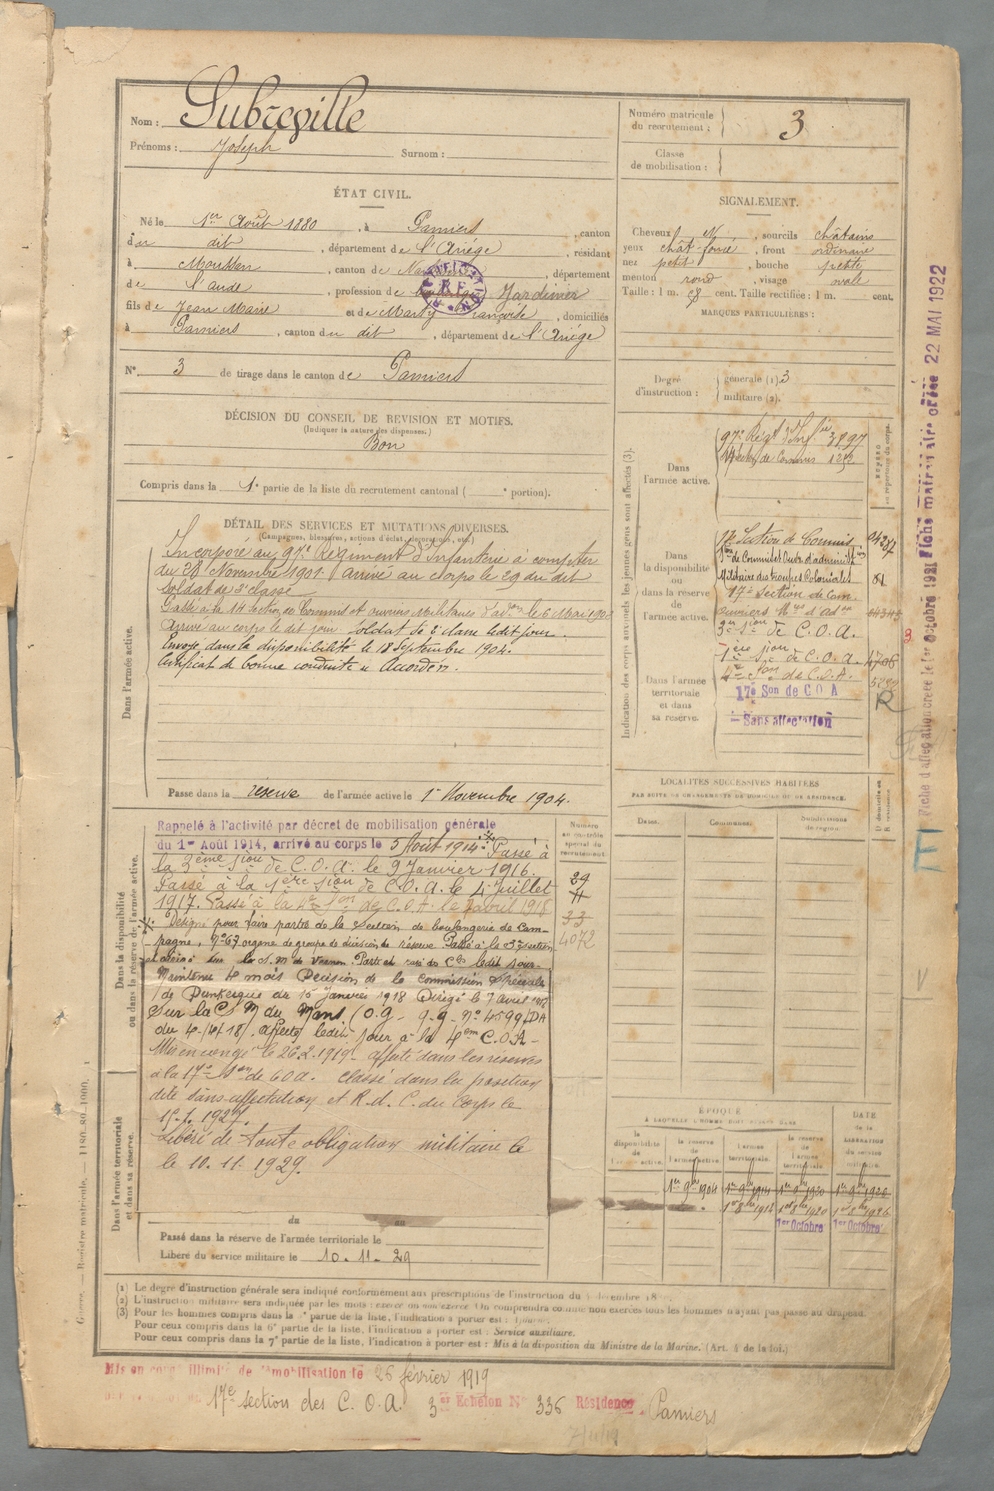 Nom : Subreville
Prénoms : Joseph Surnom :
Numéro matricule du recrutement : 3
Classe de mobilisation :
ÉTAT CIVIL.
Né le 1er Août 1880, à Pamiers, canton
du dit, département de l'Ariège, résidant
à Moussan, canton de, département
de l'Aude, profession de Jardinier
fils de Jean Marie et de Marty Françoise, domiciliés
à Pamiers, canton du dit, département de l'Ariège
N° 3 de tirage dans le canton de Pamiers
SIGNALEMENT.
Cheveux, sourcils châtains
yeux chât-foncé, front ordinaire
nez petit, bouche petite
menton rond, visage ovale
Taille : 1 m. 58 cent. Taille rectifiée : 1 m. cent.
MARQUES PARTICULIÈRES :
Degré d'instruction : générale (1) 3
militaire (2).
DÉCISION DU CONSEIL DE REVISION ET MOTIFS.
(Indiquer la nature des dispenses.)
Bon
Compris dans la 1e partie de la liste du recrutement cantonal ( e portion).
DÉTAIL DES SERVICES ET MUTATIONS DIVERSES.
(Campagnes, blessures, actions d'éclat, décorations, etc.)
Dans l'armée active.
Incorporé au 97e Régiment d'Infanterie à compter
du 28 Novembre 1901 arrivé au corps le 29 du dit
Soldat de 2e classe
Passé à la 14e Section de Commis et ouvriers Militaires d'adon le 6 Mai 1902
Arrivé au corps le dit jour. Soldat de 2e classe ledit jour.
Envoyé dans la disponibilité le 18 Septembre 1904.
Certificat de bonne conduite « Accordé ».
Passé dans la réserve de l'armée active le 1er Novembre 1904.
Indication des corps auxquels les jeunes gens sont affectés (3).
Dans l'armée active.
97e Régt d'Infie 3897
Dans la disponibilité ou dans la réserve de l'armée active.
17e Section de Commis
de Commis et Ouvrs d'administion
Militaire des troupes Coloniales
17e Section de Com.
ouvriers Mres d'Adon
3e Sion de C.O.A.
1ère Sion de C.O.A. 4706
Dans l'armée territoriale et dans sa réserve.
4e Son de C.O.A.
17e Son de C O A
Sans affectation
R
LOCALITÉS SUCCESSIVES HABITÉES
PAR SUITE DE CHANGEMENTS DE DOMICILE OU DE RÉSIDENCE.
Dates. Communes. Subdivisions de région. D domicile ou R résidence.
Dans la disponibilité ou dans la réserve de l'armée active.
Rappelé à l'activité par décret de mobilisation générale
du 1er Août 1914, arrivé au corps le 3 Août 1914. Passé à
la 3ème Sion de C.O.A. le 9 Janvier 1916.
Passé à la 1ère Sion de C.O.A. le 4 Juillet
1917. Passé à la 4e Son de C.O.A. le 7 avril 1918
Désigné pour faire partie de la Section de boulangerie de Cam-
pagne, N° 67 organe de groupe de divisions de réserve. Passé à le 33 section
Maintenu 4 mois Décision de la commission Spéciale
de Dunkerque du 15 Janvier 1918 Dirigé le 7 avril 1918
sur la S M du Mans (O.G. G.Q. N° 4599/DA
du 4/4/18), affecté ledit jour à la 4em C.O.A.
Mis en congé le 26.2.1919 affecté dans les réserves
à la 17e Son de COA. Classé dans la position
dite sans-affectation et R.d.C. du Corps le
15.1.1927.
Libéré de toute obligation militaire le
le 10.11.1929.
Numéro au contrôle spécial du recrutement.
29
11
33
4072
Dans l'armée territoriale et dans sa réserve.
du au
Passé dans la réserve de l'armée territoriale le
Libéré du service militaire le 10-11-29
ÉPOQUE
À LAQUELLE L'HOMME DOIT PASSER DANS
la disponibilité de l'armée active. la réserve de l'armée active. l'armée territoriale. la réserve de l'armée territoriale.
DATE de la LIBÉRATION du service militaire.
1er 9bre 1904 1er 9bre 1914 1er 9bre 1920 1er 9bre 1926
1er Octobre 1er Octobre
(1) Le degré d'instruction générale sera indiqué conformément aux prescriptions de l'instruction du
(2) L'instruction militaire sera indiquée par les mots : exercé ou non exercé. On comprendra comme non exercés tous les hommes n'ayant pas passé au drapeau.
(3) Pour les hommes compris dans la partie de la liste, l'indication à porter est :
Pour ceux compris dans la 6e partie de la liste, l'indication à porter est : Service auxiliaire.
Pour ceux compris dans la 7e partie de la liste, l'indication à porter est : Mis à la disposition du Ministre de la Marine. (Art. 4 de la loi.)
Mis en congé illimité de démobilisation le 26 février 1919
17e section des C.O.A. 3e Échelon N° 336 Résidence Pamiers
Fiche d'affectation créée le 1er octobre 1921 Fiche matriculaire créée 22 MAI 1922